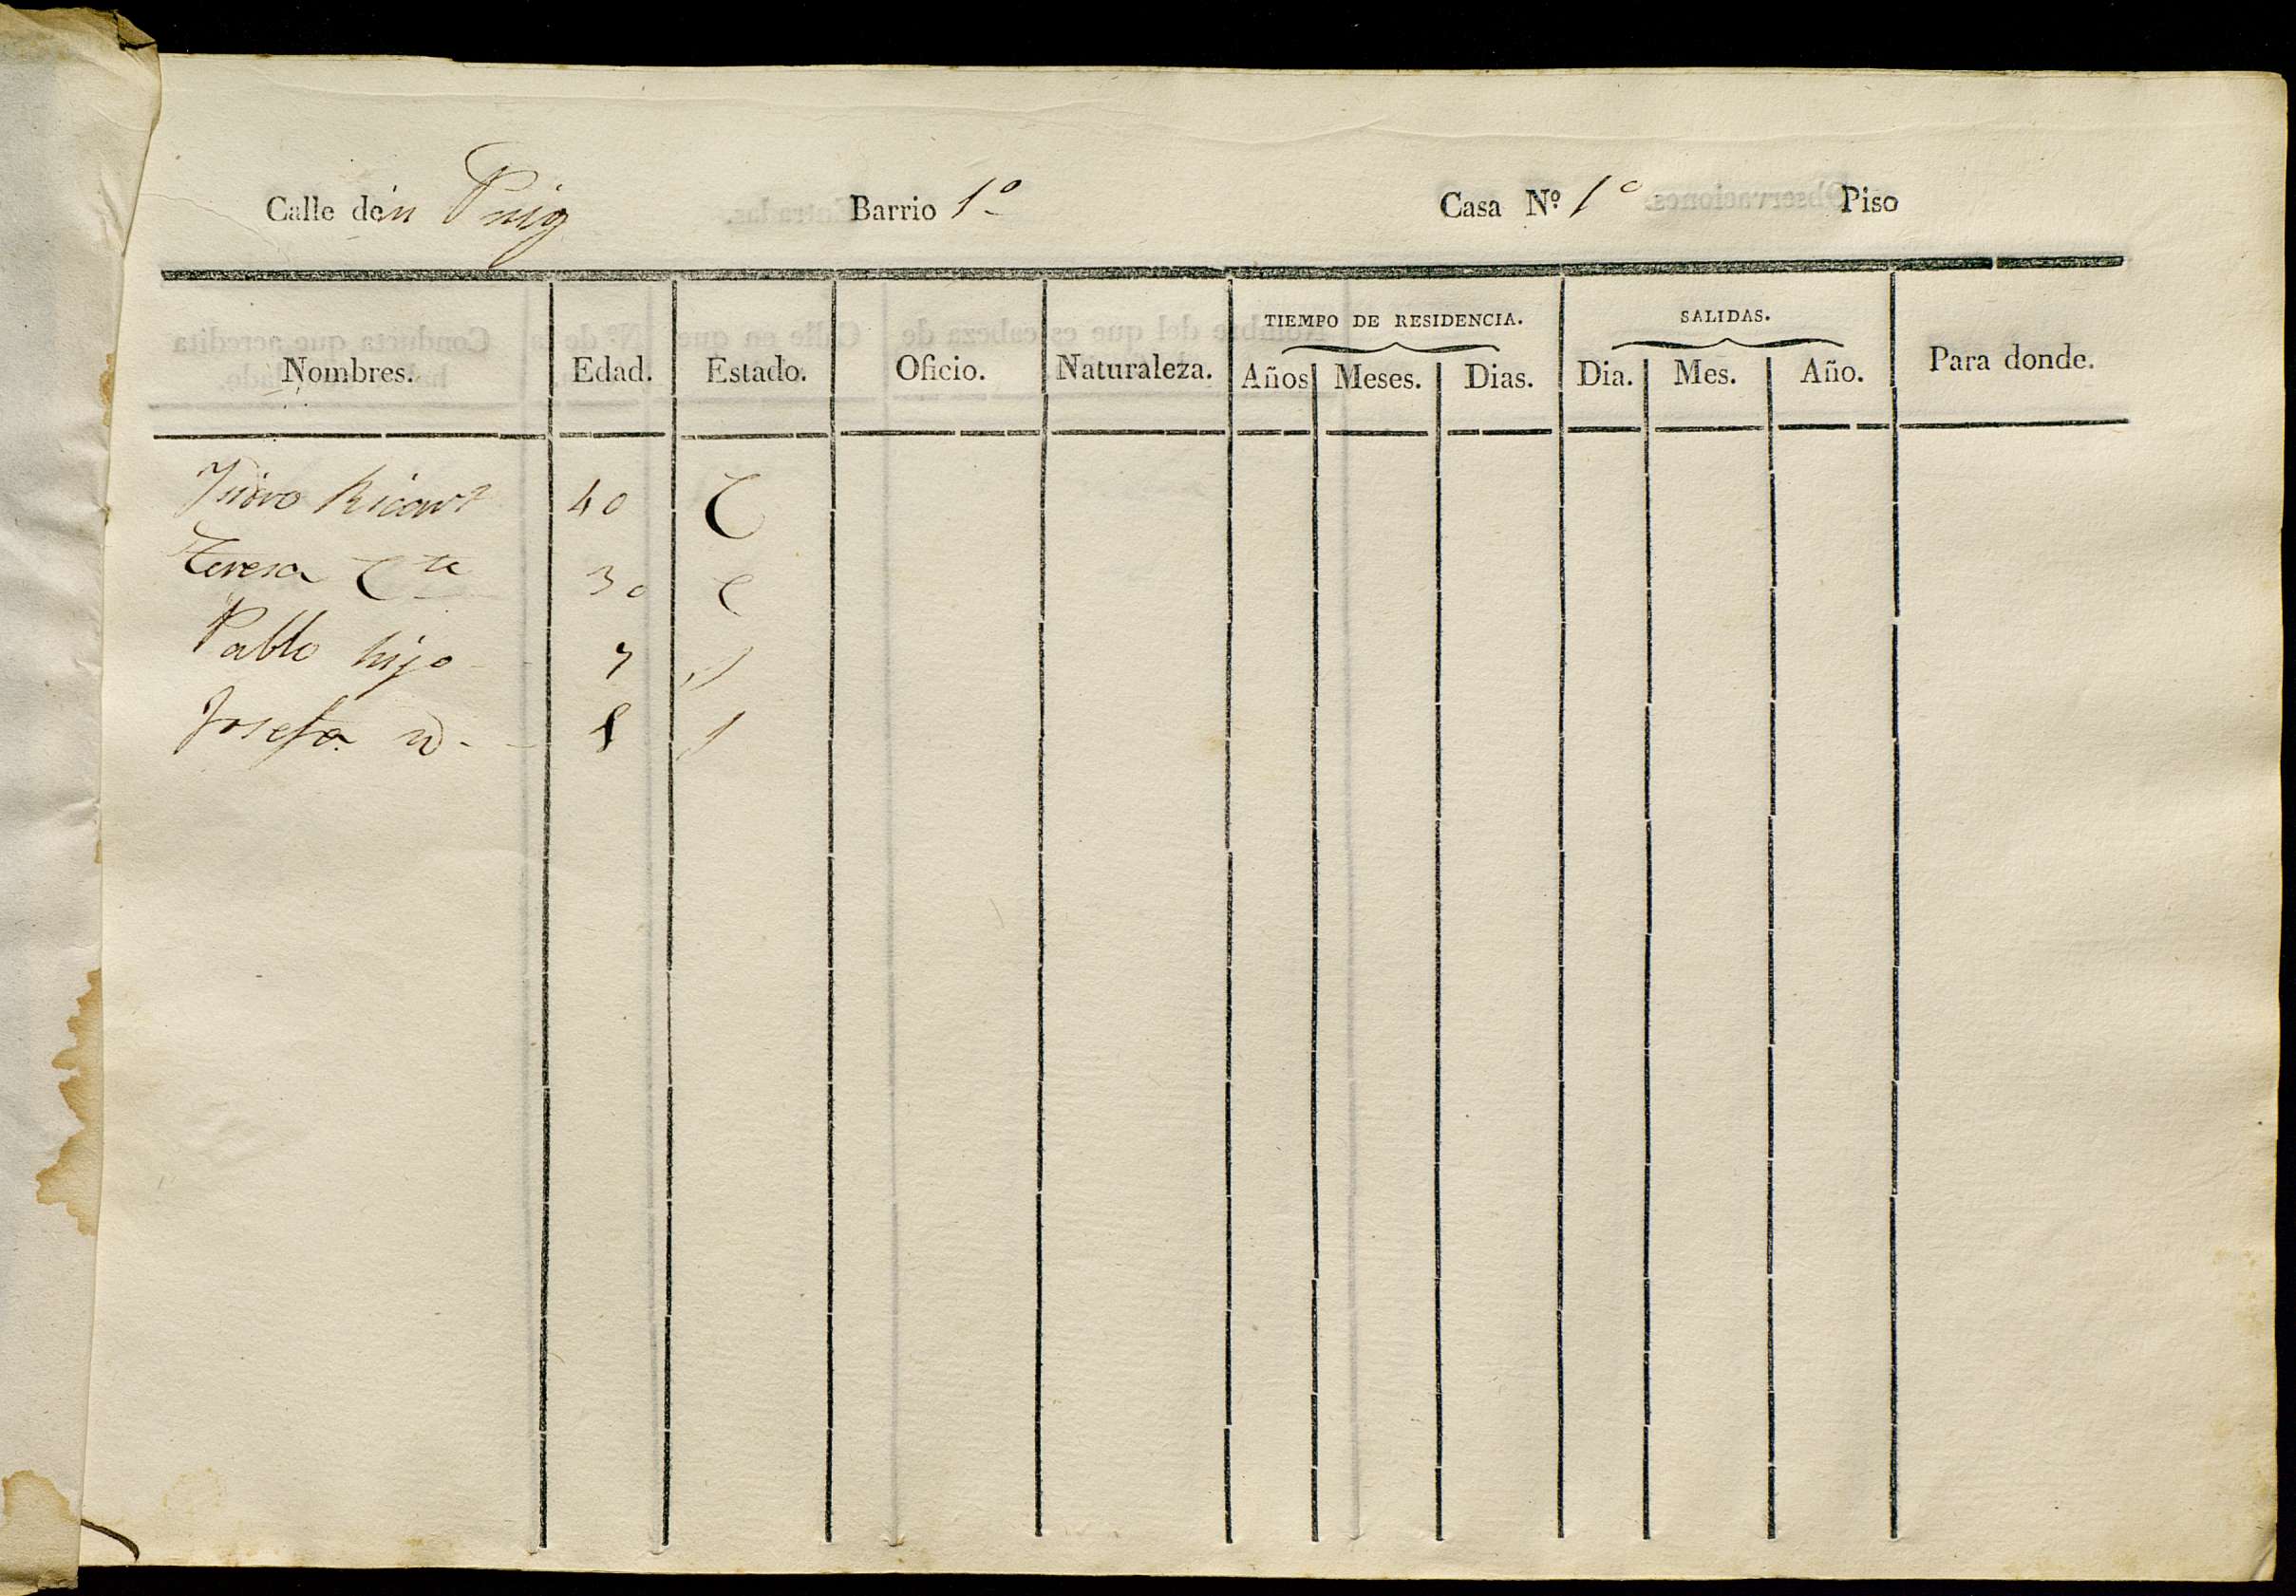 Calle den Puig Barrio 1º Casa Nº 1º Piso
TIEMPO DE RESIDENCIA. SALIDAS.
Nombres. Edad. Estado. Oficio. Naturaleza. Años Meses. Dias. Dia. Mes. Año. Para donde.
Isidro Ricart 40 C
Teresa C.te 30 C
Pablo hijo 7 s
Josefa id. 8 s